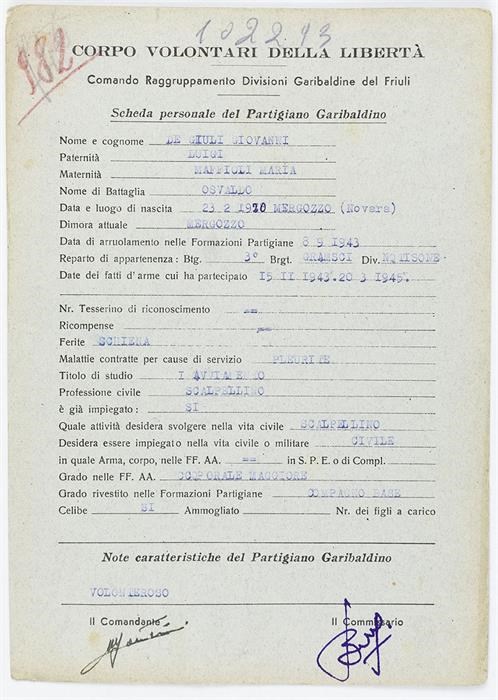 102243
982
CORPO VOLONTARI DELLA LIBERTÀ
Comando Raggruppamento Divisioni Garibaldine del Friuli
Scheda personale del Partigiano Garibaldino
Nome e cognome DE GIULI GIOVANNI
Paternità LUIGI
Maternità MAFFIOLI MARIA
Nome di Battaglia OSVALDO
Data e luogo di nascita 23 2 1920 MERGOZZO (Novara)
Dimora attuale MERGOZZO
Data di arruolamento nelle Formazioni Partigiane 8 9 1943
Reparto di appartenenza: Btg. 3° Brgt. GRAMSCI Div. NATISONE
Date dei fatti d'arme cui ha partecipato 15 II 1943. 20 3 1945.
Nr. Tesserino di riconoscimento ==
Ricompense ==
Ferite SCHIENA
Malattie contratte per cause di servizio PLEURITE
Titolo di studio I AVVIAMENTO
Professione civile SCALPELLINO
è già impiegato: SI
Quale attività desidera svolgere nella vita civile SCALPELLINO
Desidera essere impiegato nella vita civile o militare CIVILE
in quale Arma, corpo, nelle FF. AA. == in S. P. E. o di Compl.
Grado nelle FF. AA. CCPORALE MAGGIORE
Grado rivestito nelle Formazioni Partigiane COMPAGNO BASE
Celibe SI Ammogliato Nr. dei figli a carico
Note caratteristiche del Partigiano Garibaldino
VOLONTEROSO
Il Comandante Il Commissario